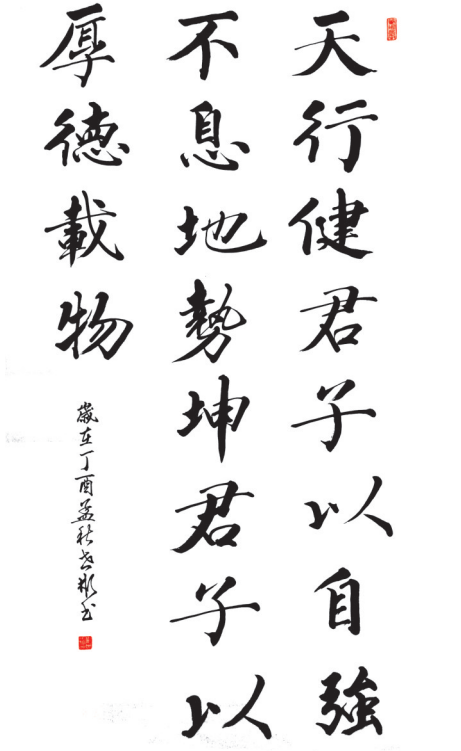 天行健君子以自強
不息地勢坤君子以
厚德載物
歲在丁酉孟秋志彬书